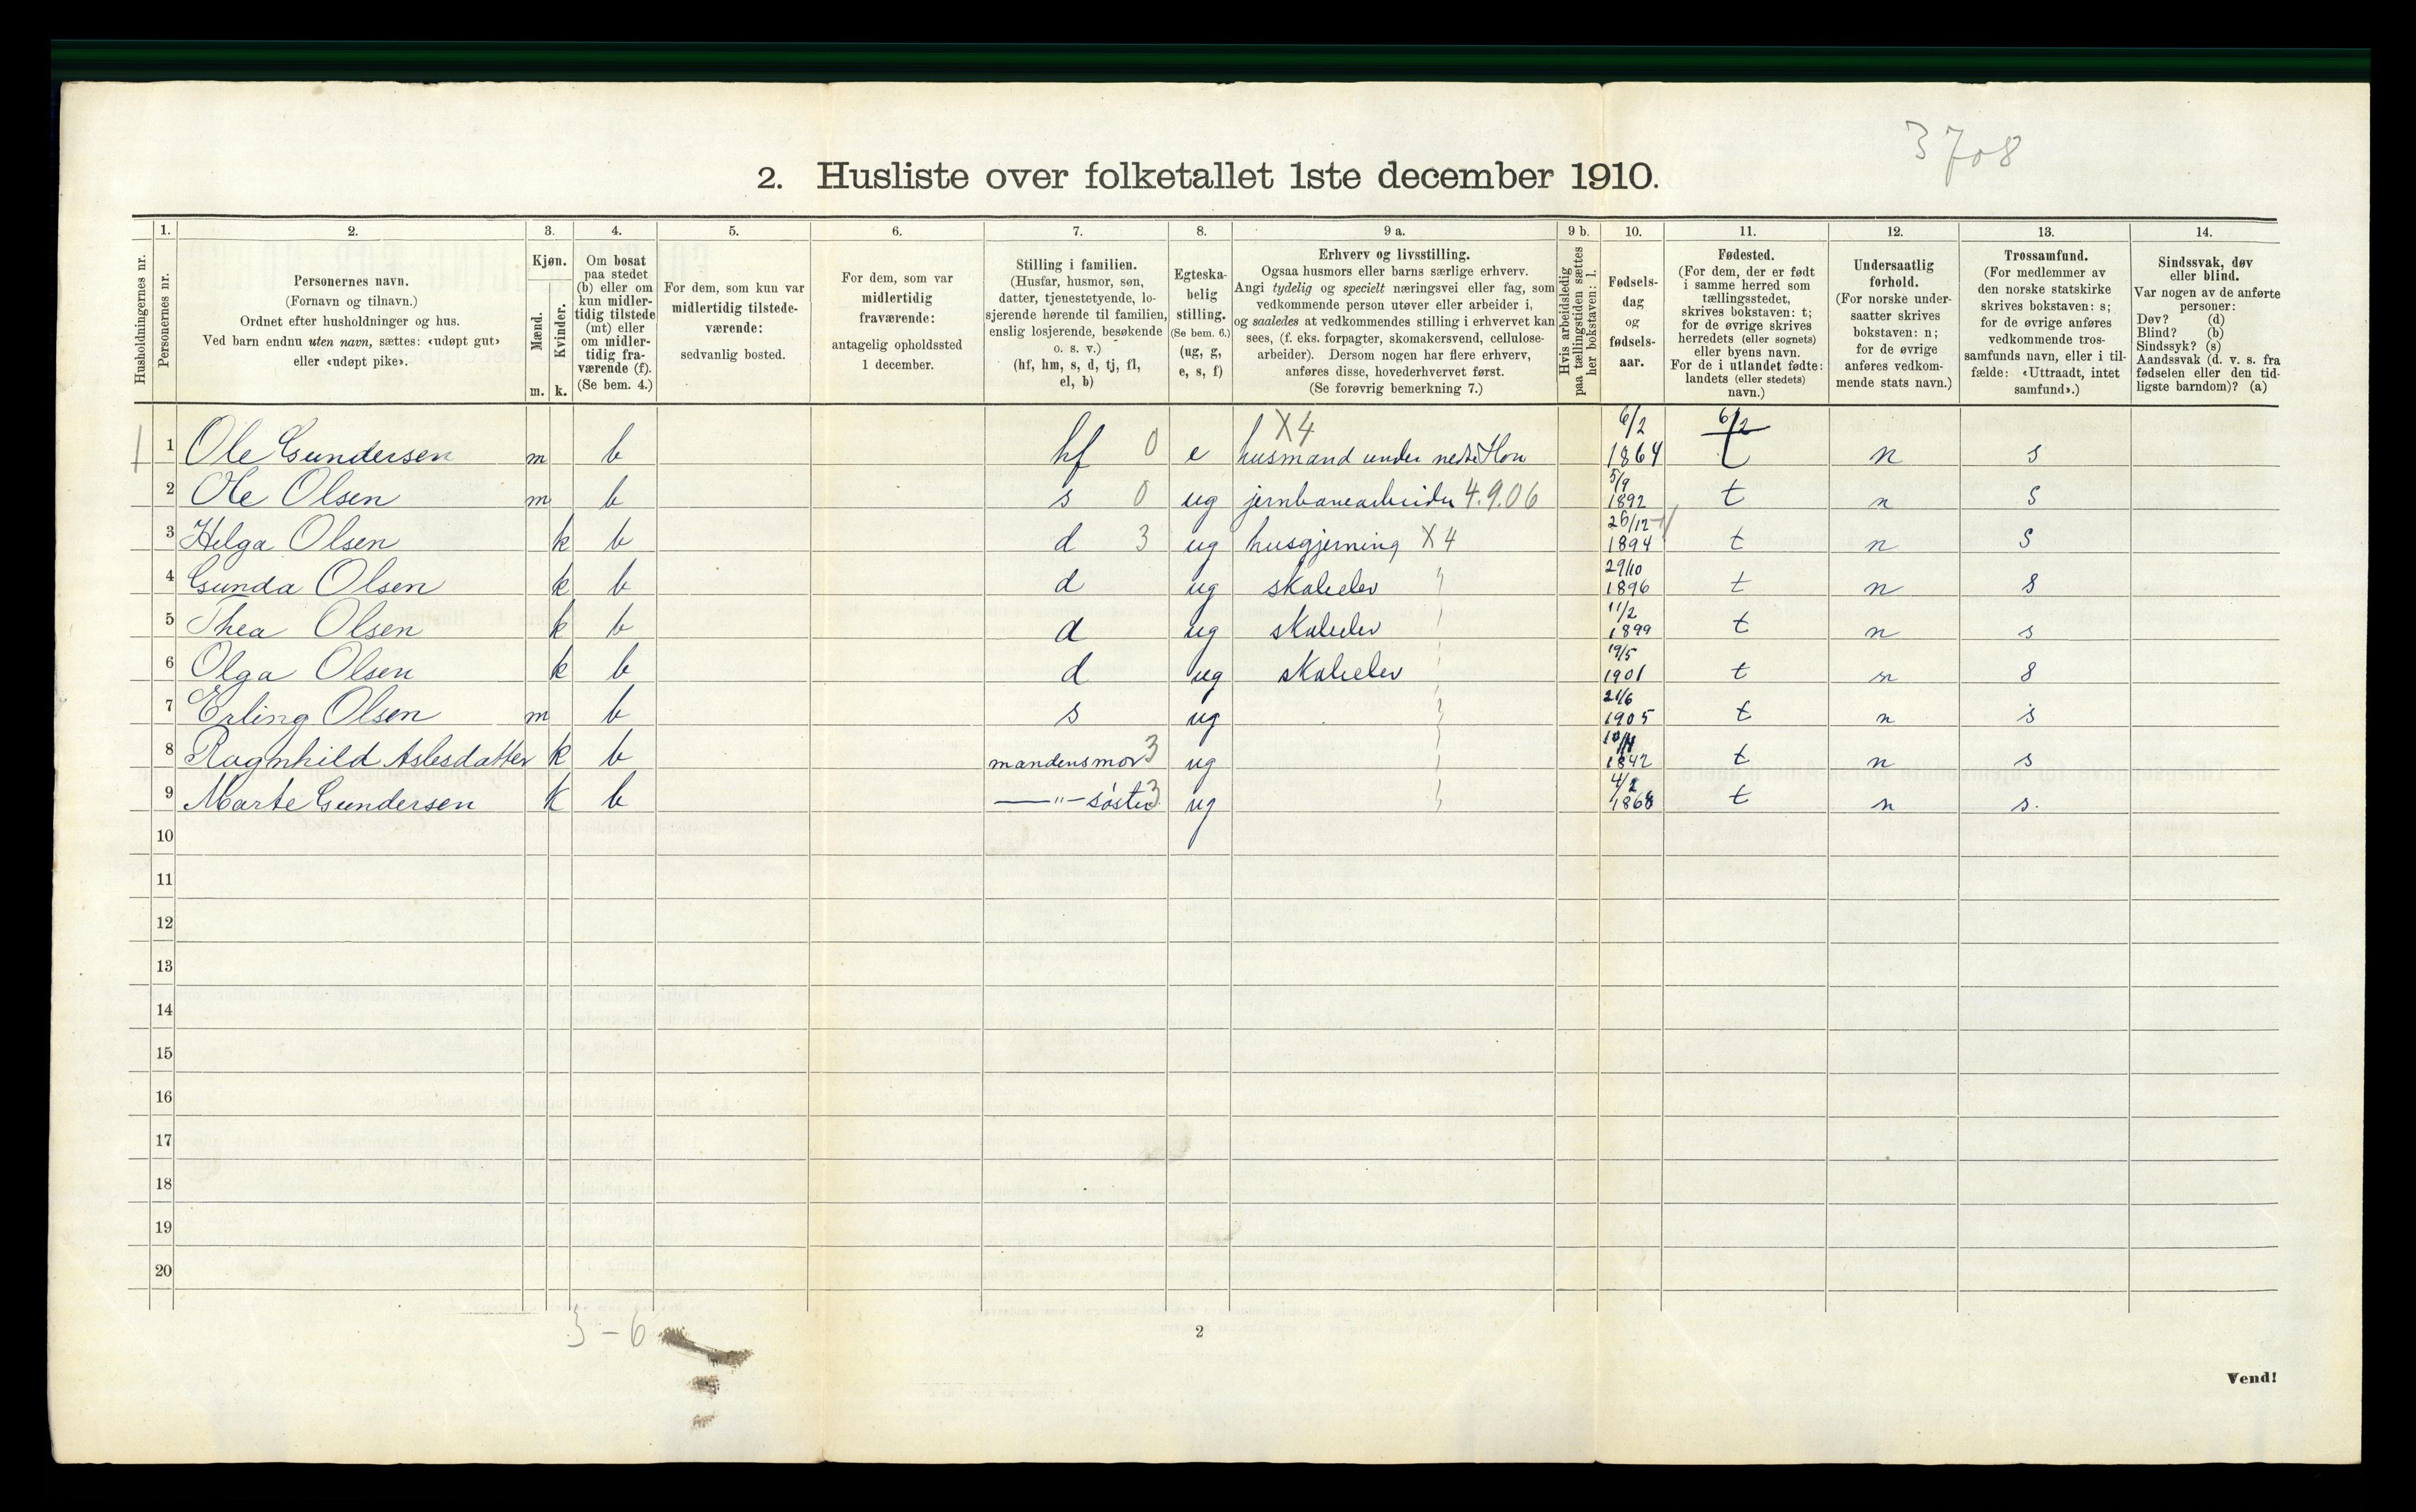 3708
2. Husliste over folketallet 1ste december 1910.
Husholdningernes nr.
1.
Personernes nr.
2.
Personernes navn.
(Fornavn og tilnavn.)
Ordnet efter husholdninger og hus.
Ved barn endnu uten navn, sættes: «udøpt gut»
eller «udøpt pike».
3.
Kjøn.
Mænd.
Kvinder.
m. k.
4.
Om bosat
paa stedet
(b) eller om
kun midler-
tidig tilstede
(mt) eller
om midler-
tidig fra-
værende (f).
(Se bem. 4.)
5.
For dem, som kun var
midlertidig tilstede-
værende:
sedvanlig bosted.
6.
For dem, som var
midlertidig
fraværende:
antagelig opholdssted
1 december.
7.
Stilling i familien.
(Husfar, husmor, søn,
datter, tjenestetyende, lo-
sjerende hørende til familien,
enslig losjerende, besøkende
o. s. v.)
(hf, hm, s, d, tj, fl,
el, b)
8.
Egteska-
belig
stilling.
(Se bem. 6.)
(ug, g,
e, s, f)
9 a.
Erhverv og livsstilling.
Ogsaa husmors eller barns særlige erhverv.
Angi tydelig og specielt næringsvei eller fag, som
vedkommende person utøver eller arbeider i,
og saaledes at vedkommendes stilling i erhvervet kan
sees, (f. eks. forpagter, skomakersvend, cellulose-
arbeider). Dersom nogen har flere erhverv,
anføres disse, hovederhvervet først.
(Se forøvrig bemerkning 7.)
9 b.
Hvis arbeidsledig
paa tællingstiden sættes
her bokstaven: l.
10.
Fødsels-
dag
og
fødsels-
aar.
11.
Fødested.
(For dem, der er født
i samme herred som
tællingsstedet,
skrives bokstaven: t;
for de øvrige skrives
herredets (eller sognets)
eller byens navn.
For de i utlandet fødte:
landets (eller stedets)
navn.)
12.
Undersaatlig
forhold.
(For norske under-
saatter skrives
bokstaven: n;
for de øvrige
anføres vedkom-
mende stats navn.)
13.
Trossamfund.
(For medlemmer av
den norske statskirke
skrives bokstaven: s;
for de øvrige anføres
vedkommende tros-
samfunds navn, eller i til-
fælde: «Uttraadt, intet
samfund».)
14.
Sindssvak, døv
eller blind.
Var nogen av de anførte
personer:
Døv? (d)
Blind? (b)
Sindssyk? (s)
Aandssvak (d. v. s. fra
fødselen eller den tid-
ligste barndom)? (a)
X4 6/2 6/2
1 1 Ole Gundersen m b hf 0 e husmand under nedre Hon 1864 t n s
5/9
2 Ole Olsen m b s 0 ug jernbanearbeider 4.9.06 1892 t n s
26/12
3 Helga Olsen k b d 3 ug husgjerning X4 1894 t n s
29/10
4 Gunda Olsen k b d ug skoleelev 1896 t n s
11/2
5 Thea Olsen k b d ug skoleelev 1899 t n s
19/5
6 Olga Olsen k b d ug skoleelev 1901 t n s
21/6
7 Erling Olsen m b s ug 1905 t n s
8 Ragnhild Aslesdatter k b mandens mor 3 ug 1842 t n s
4/2
9 Marte Gundersen k b —"— søster 3 ug 1868 t n s.
10
11
12
13
14
15
16
17
18
19
20
3-6
2
Vend!